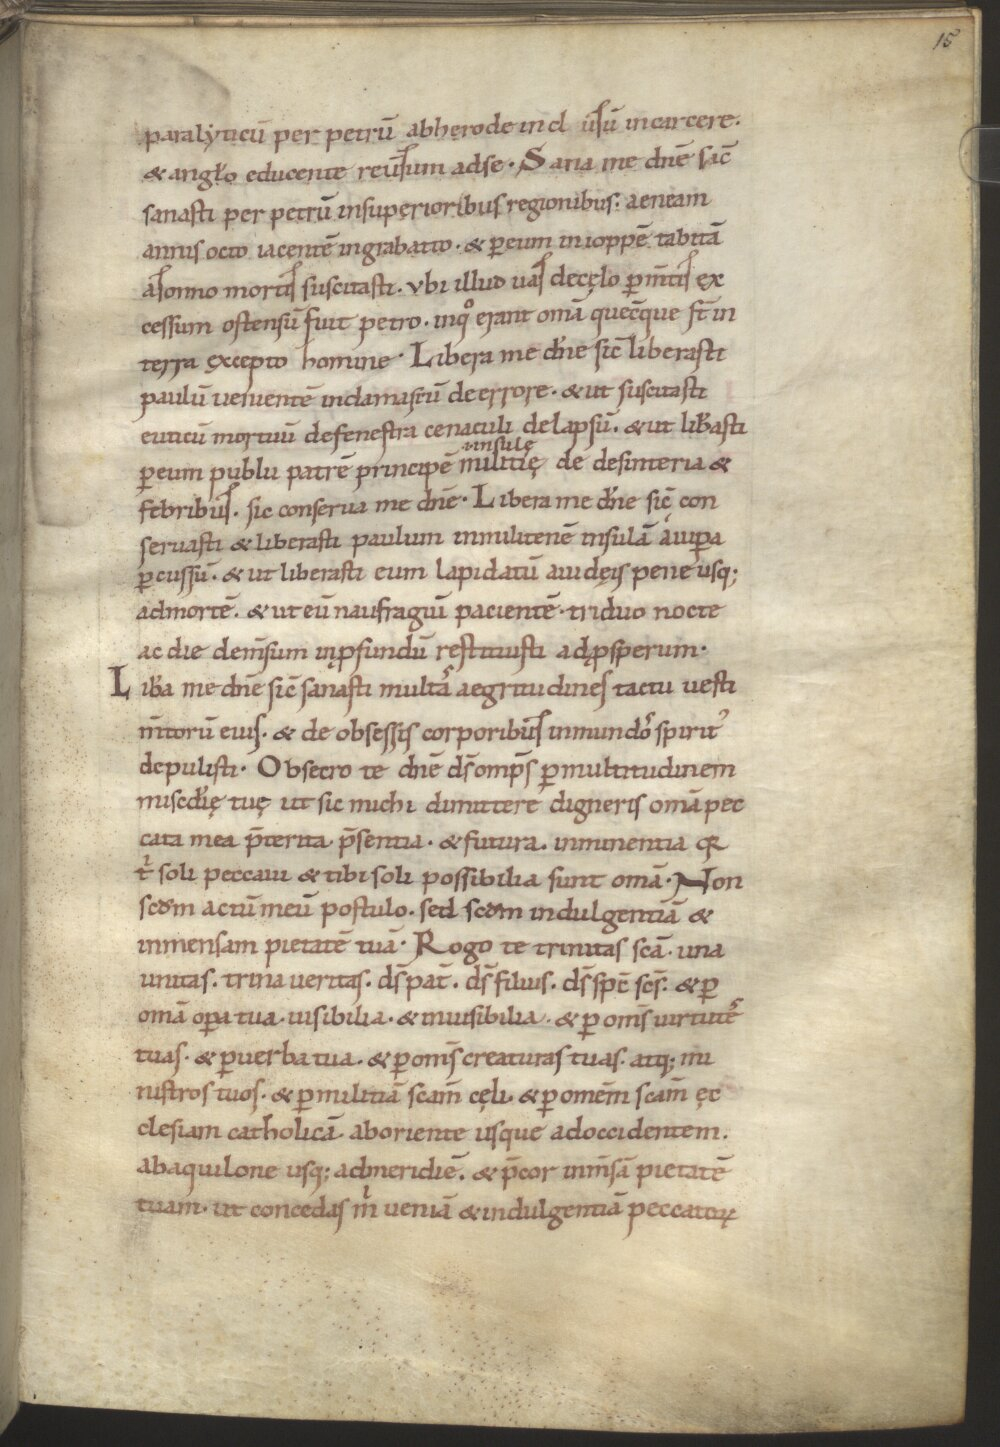 15
paralyticū per petrū abherode incl usū incarcere.
& angło educente reuersum adse. Sana me dn̄e sic̄
sanasti per petrū insuperioribus regionibus: aeneam
annis octo iacentē ingrabatto. & ꝑeum inioppē tabitā
asomno mortis suscitasti. vbi illud uas decęlo ꝑm̄tis ęx
cessum ostensū fuit petro. inqͦ erant omā quec̄que st̄ in
terra ęxcepto homine. Libera me dn̄e sic̄ liberasti
paulū uenientē indamascū deerrore. & ut suscitasti
euticū mortuū defenestra cenaculi delapsū. & ut lib̄asti
ꝑeum publii patrē principē militię de desinteria &
insulę
febribus. sic conserua me dn̄e. Libera me dn̄e sic̄ con
seruasti & liberasti paulum inmilitenē insulā auiꝑa
ꝑcussū. & ut liberasti eum lapidatū aiudęis pene usq;
admortē. & ut eū naufragiū pacientē. triduo nocte
ac die dem̄sum inꝓfundū restituisti adꝓsperum.
Lib̄a me dn̄e sic̄ sanasti multas aegritudines tactu uesti
m̄torū eius. & de obsessis corporibus inmundoꝝ spirit᾽
depulisti. Obsecro te dn̄e ds̄ omp̄s ꝑmultitudinem
misc̄dię tuę ut sic michi dimittere digneris omā pec
cata mea p̄terita. p̄sentia. & futura. inminentia qꝛ
t̍ soli peccaui & tibi soli possibilia sunt omā. Non
scdm actū meū postulo. sed scdm indulgentiā &
inmensam pietatē tuā. Rogo te trinitas scā. una
unitas. trina ueritas. ds̄ pat̄. ds̄ filius. ds̄ spc̄ scs̄. & ꝑ
omā oꝑa tua. uisibilia. & inuisibilia. & ꝑ oms̄ uirtutes
tuas. & ꝑuerba tua. & ꝑ oms̄ creaturas tuas. atq; mi
nistros tuos. & ꝑ militiā scam̄ cęli. & ꝑ omem̄ scam̄ ęc
clesiam catholicā. aboriente usque adoccidentem.
abaquilone usq; admeridiē. & p̄cor inm̄sā pietatē
tuam. ut concedas m̍ ueniā & indulgentiā peccatoꝝ